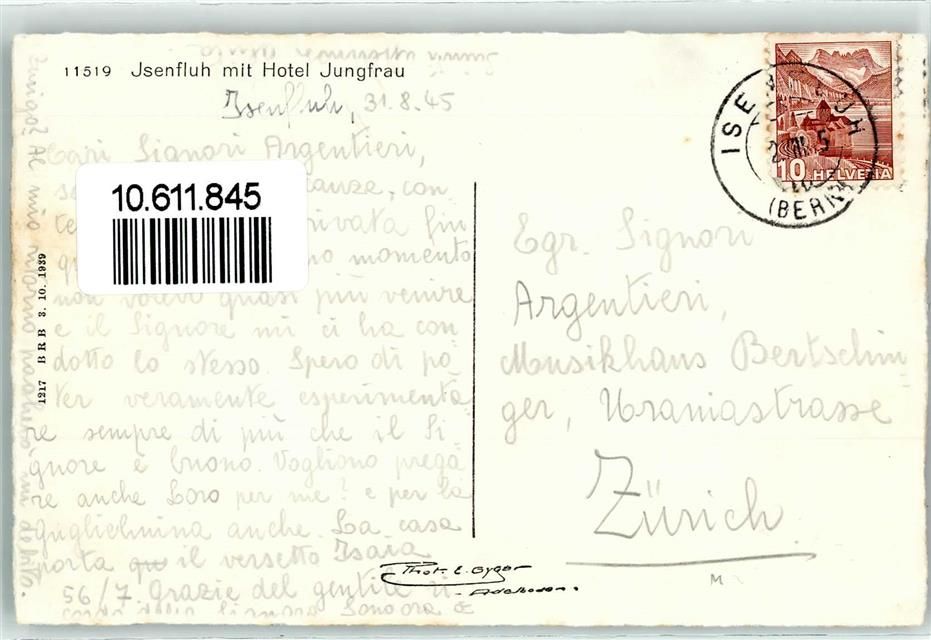 11519 Jsenfluh mit Hotel Jungfrau
Isenfluh, 31.8.45
Cari Signori Argentieri,
10.611.845
tanze, con
rivata fin
no momento
non volevo quasi più venire
e il Signore mi ci ha con
dotto lo stesso. Spero di po
ter veramente esperimenta
re sempre di più che il Si-
gnore è buono. Vogliono prega
re anche Loro per me? e per la
Guglielmina anche. La casa
porta il versetto Isaia
56/7 Grazie del gentile ri
cordo della Signora
Zurigo? Al mio ritorno
1217 BRB 3. 10. 1939
Egr. Signori
Argentieri,
Musikhaus Bertschin
ger, Uraniastrasse
Zürich
Phot. E. Gyger
Adelboden.
ISE UH
(BERN)
10 HELVETIA
M